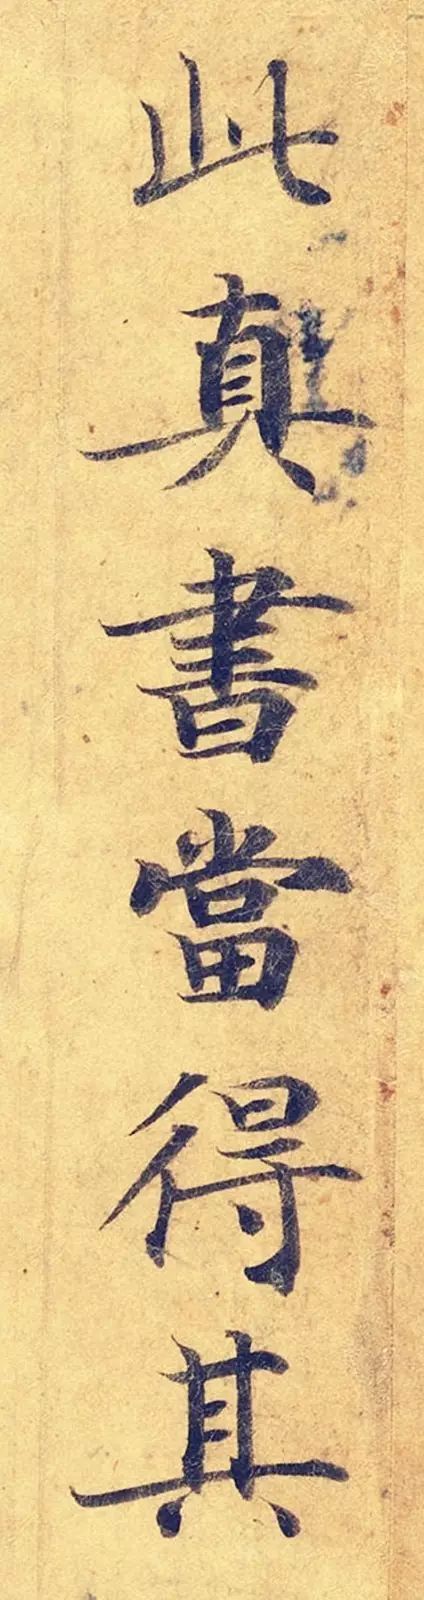 此真書當得其